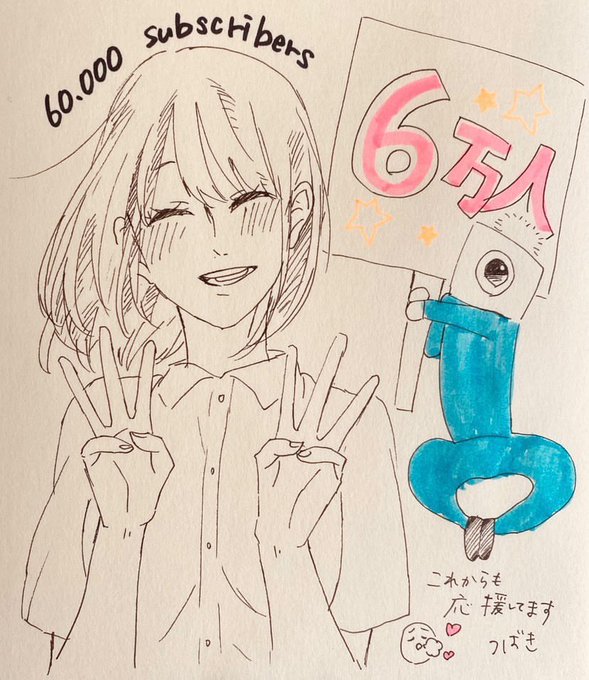 60.000 subscribers
6万人
これからも
応援してます
つばき